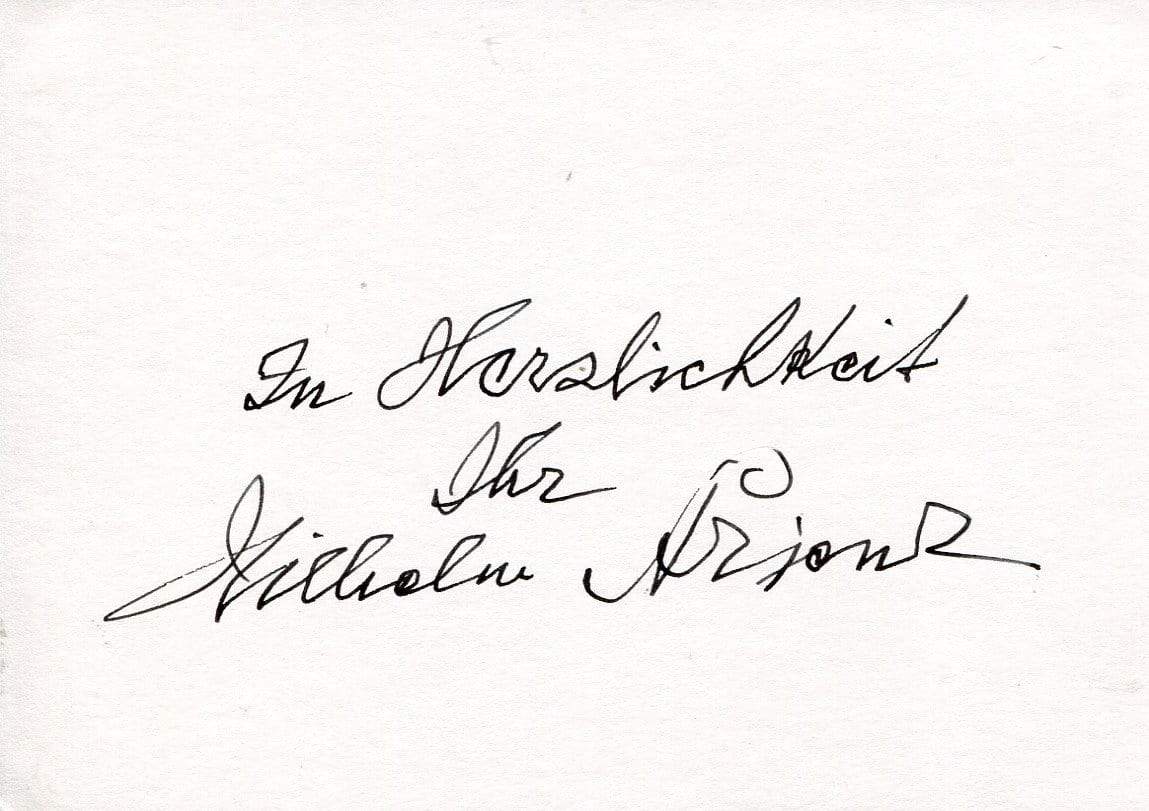 In Herzlichkeit
Ihr
Wilhelm